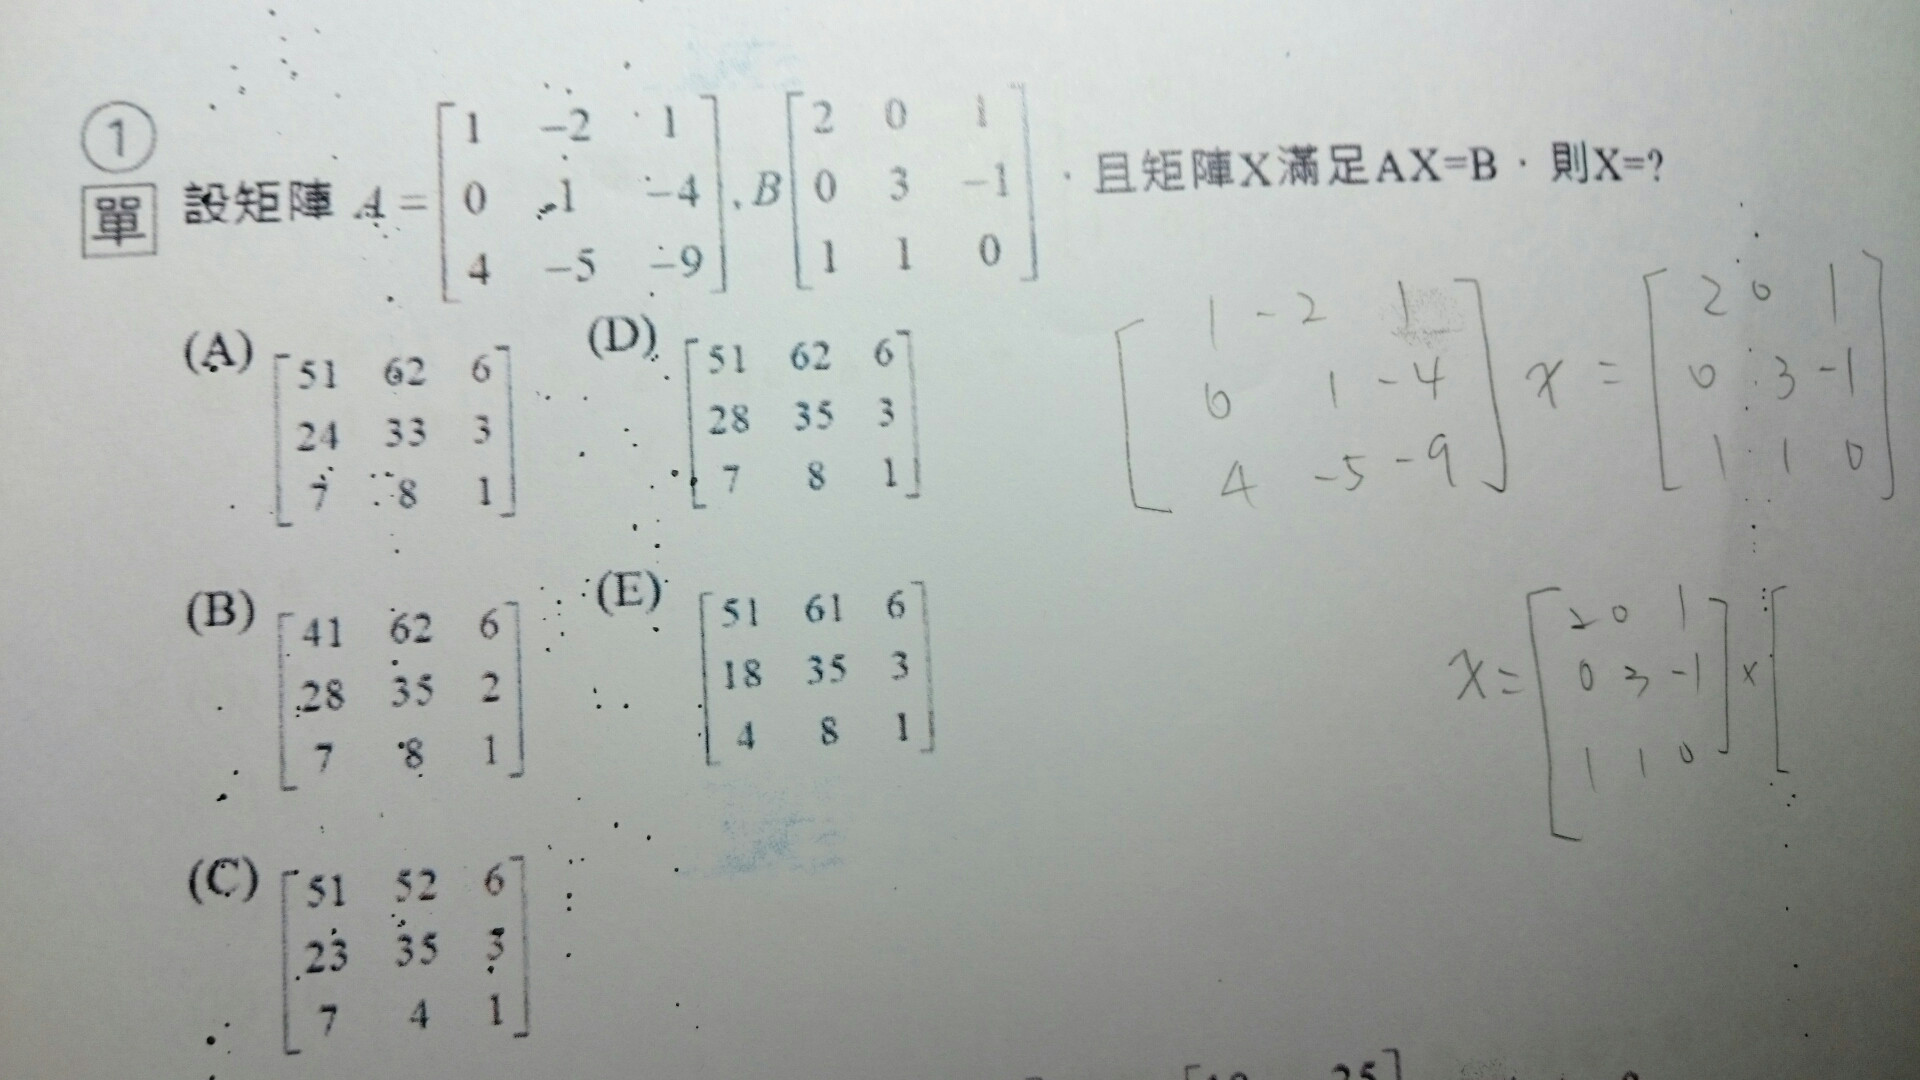 ① 單 設矩陣 A = [1 -2 1
0 1 -4
4 -5 -9], B [2 0 1
0 3 -1
1 1 0],且矩陣X滿足AX=B,則X=?
(A) [51 62 6
24 33 3
7 8 1]
(D) [51 62 6
28 35 3
7 8 1]
(B) [41 62 6
28 35 2
7 8 1]
(E) [51 61 6
18 35 3
4 8 1]
(C) [51 52 6
23 35 3
7 4 1]
[1 -2 1
0 1 -4
4 -5 -9] x = [2 0 1
0 3 -1
1 1 0]
x = [2 0 1
0 3 -1
1 1 0] × [